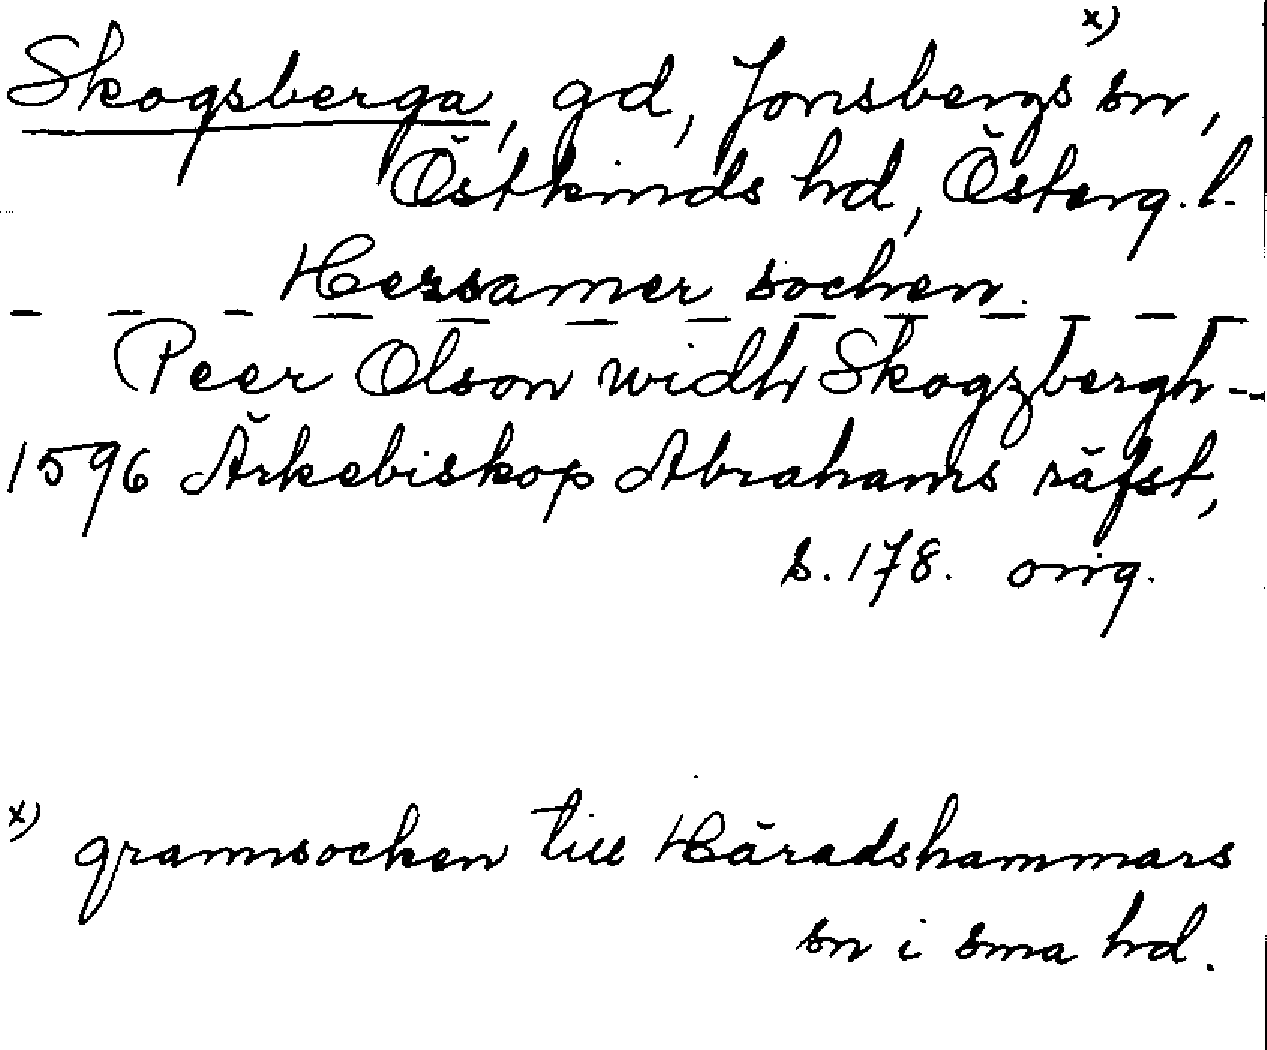 Skogsberga, gd, Jonsbergs x) sn,
Östkinds hd, Österg. l.
Hersamer sochen.
– – – – – – – – – – –
Peer Olson widh Skogzbergh --
1596 Ärkebiskop Abrahams räfst,
s. 178. orig.
x) grannsocken till Häradshammars
sn i sma hd.